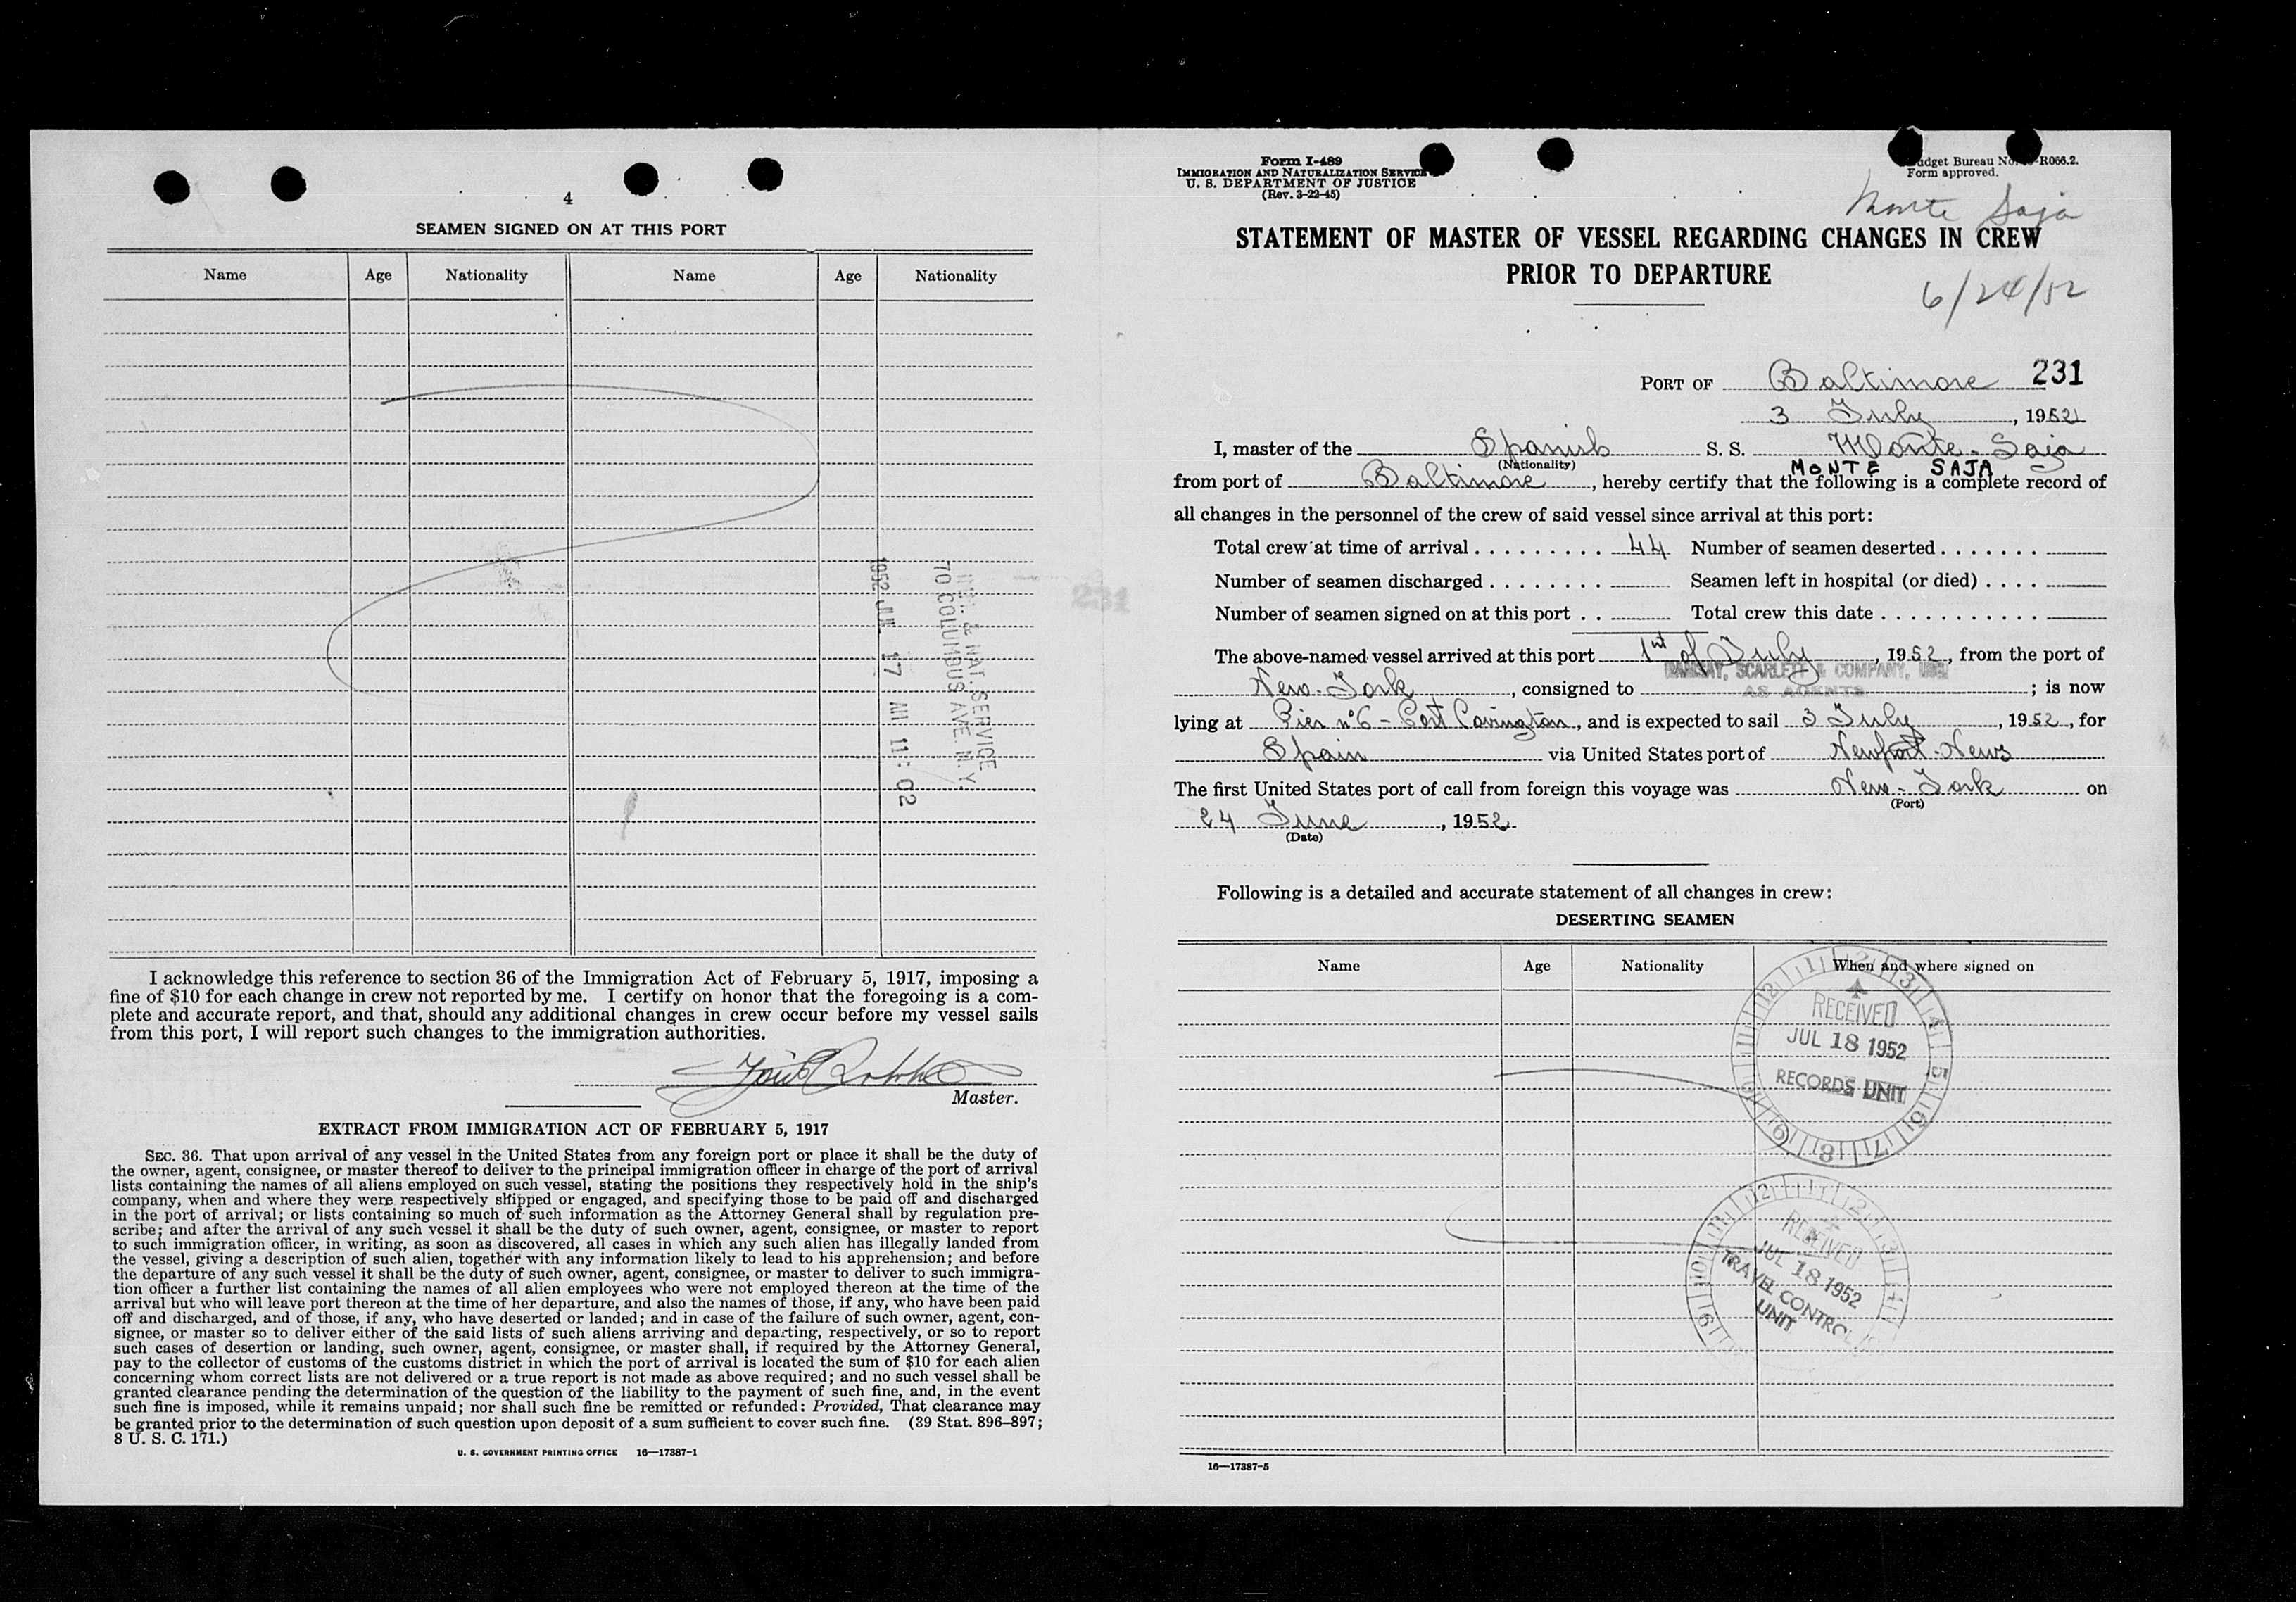 4
SEAMEN SIGNED ON AT THIS PORT
Name Age Nationality Name Age Nationality
NAT. SERVICE
70 COLUMBUS AVE. N.Y.
1952 JUL 17 AM 11:02
I acknowledge this reference to section 36 of the Immigration Act of February 5, 1917, imposing a
fine of $10 for each change in crew not reported by me. I certify on honor that the foregoing is a com-
plete and accurate report, and that, should any additional changes in crew occur before my vessel sails
from this port, I will report such changes to the immigration authorities.
Master.
EXTRACT FROM IMMIGRATION ACT OF FEBRUARY 5, 1917
SEC. 36. That upon arrival of any vessel in the United States from any foreign port or place it shall be the duty of
the owner, agent, consignee, or master thereof to deliver to the principal immigration officer in charge of the port of arrival
lists containing the names of all aliens employed on such vessel, stating the positions they respectively hold in the ship's
company, when and where they were respectively shipped or engaged, and specifying those to be paid off and discharged
in the port of arrival; or lists containing so much of such information as the Attorney General shall by regulation pre-
scribe; and after the arrival of any such vessel it shall be the duty of such owner, agent, consignee, or master to report
to such immigration officer, in writing, as soon as discovered, all cases in which any such alien has illegally landed from
the vessel, giving a description of such alien, together with any information likely to lead to his apprehension; and before
the departure of any such vessel it shall be the duty of such owner, agent, consignee, or master to deliver to such immigra-
tion officer a further list containing the names of all alien employees who were not employed thereon at the time of the
arrival but who will leave port thereon at the time of her departure, and also the names of those, if any, who have been paid
off and discharged, and of those, if any, who have deserted or landed; and in case of the failure of such owner, agent, con-
signee, or master so to deliver either of the said lists of such aliens arriving and departing, respectively, or so to report
such cases of desertion or landing, such owner, agent, consignee, or master shall, if required by the Attorney General,
pay to the collector of customs of the customs district in which the port of arrival is located the sum of $10 for each alien
concerning whom correct lists are not delivered or a true report is not made as above required; and no such vessel shall be
granted clearance pending the determination of the question of the liability to the payment of such fine, and, in the event
such fine is imposed, while it remains unpaid; nor shall such fine be remitted or refunded: Provided, That clearance may
be granted prior to the determination of such question upon deposit of a sum sufficient to cover such fine. (39 Stat. 896–897;
8 U. S. C. 171.)
U. S. GOVERNMENT PRINTING OFFICE 16—17387-1
Form I-489
IMMIGRATION AND NATURALIZATION SERVICE
U. S. DEPARTMENT OF JUSTICE
(Rev. 3-22-45)
Budget Bureau No. -R066.2.
Form approved.
Monte Saja
STATEMENT OF MASTER OF VESSEL REGARDING CHANGES IN CREW
PRIOR TO DEPARTURE
6/24/52
PORT OF Baltimore 231
3 July, 1952
I, master of the Spanish S. S. Monte-Saja
(Nationality) MONTE SAJA
from port of Baltimore, hereby certify that the following is a complete record of
all changes in the personnel of the crew of said vessel since arrival at this port:
Total crew at time of arrival . . . . . . . . . 44 Number of seamen deserted . . . . . . .
Number of seamen discharged . . . . . . . . Seamen left in hospital (or died) . . . .
Number of seamen signed on at this port . . Total crew this date . . . . . . . . . . .
The above-named vessel arrived at this port 1st of July, 1952, from the port of
SCARLETT & COMPANY, INC.
New-York, consigned to AS AGENTS ; is now
lying at Pier nº6 - Port Covington, and is expected to sail 3 July, 1952, for
Spain via United States port of Newport-News
The first United States port of call from foreign this voyage was New-York on
(Port)
24 June, 1952
(Date)
Following is a detailed and accurate statement of all changes in crew:
DESERTING SEAMEN
Name Age Nationality When and where signed on
RECEIVED
JUL 18 1952
RECORDS UNIT
RECEIVED
JUL 18 1952
TRAVEL CONTROL
UNIT
16—17387-5